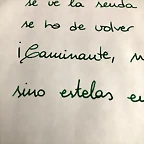 se ve la senda
se ha de volver
¡Caminante,
sino estelas